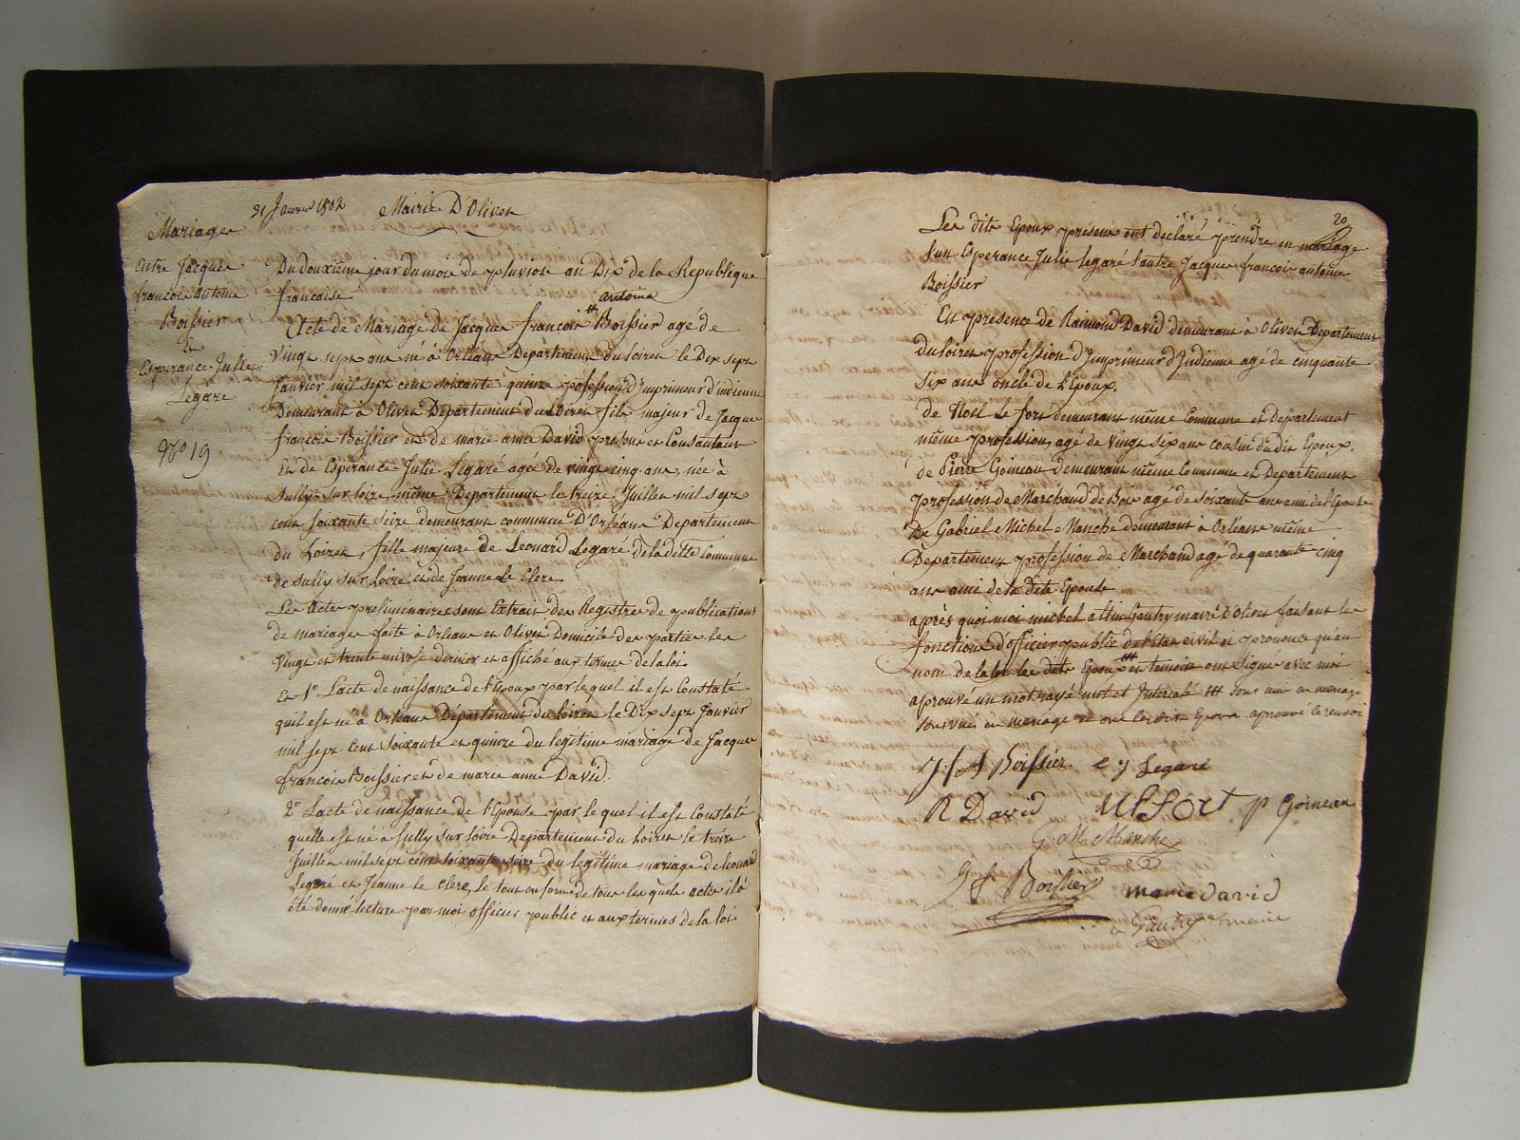 31 Janvier 1802 Mairie D'Olivet
Mariages
Entre Jacques
françois antoine
Boissier
&
Esperance Julie
Legare
No 19
Du douzieme jour du mois de pluviose an Dix de la Republique
française
antoine
Acte de Mariage de Jacques françois Boissier agé de
vingt sept ans né à Orléans Departement du Loiret le Dix sept
Janvier mil sept cent soixante quinze profession d'imprimeur d'indienne
Demeurant à Olivet Departement du Loiret fils majeur de Jacques
françois Boissier et de marie anne David present et Consentant
Et de Esperance Julie Legaré agée de vingt cinq ans, née à
Sully sur loire même Departement le treize Juillet mil sept
cent soixante seize demeurant commune D'Orleans Departement
du Loiret, fille majeure de Leonard Legaré de la ditte Commune
de Sully sur Loire et de Jeanne Le Clerc
Les Actes preliminaires sont Extrait des Registres de publications
de mariages faite à Orleans et Olivet Domicile des parties les
vingt et trente nivose dernier et affiché aux termes de la loi.
Et 1º L'acte de naissance de l'Epoux par lequel il est Constaté
qu'il est né à Orleans Département du loiret le Dix sept Janvier
mil sept Cent soixante et quinze du legitime mariage de Jacques
françois Boissier et de marie anne David.
2º L'acte de naissance de l'Epouse par le quel il est Constaté
quelle est né à Sully sur loire Departement du Loiret le treize
Juillet mil sept cent soixante seize du legitime mariage de leonard
Legaré et Jeanne le Clerc, Le tout en forme de tous les quels actes il à
été donné lecture par moi officier public et aux termes de la loi
20
Les dits Epoux presens ont déclaré prendre en mariage
l'un Esperance Julie legare l'autre Jacques françois antoine
Boissier
En presence de Raimond David demeurant à Olivet Departement
du loiret profession d'Imprimeur d'Indienne agé de cinquante
six ans oncle de l'Epoux.
de Noel Le fort demeurant même Commune et Departement
même profession, agé de vingt six ans cousin du dit Epoux.
de Pierre Goineau demeurant même Commune et Departement
profession de Marchand de Bois agé de soixante ans ami de l'Epouse
De Gabriel Michel Manche demeurant à Orleans même
Departement profession de Marchand agé de quarante cinq
ans ami de la dite Epouse
après quoi moi michel Gautry maire d'olivet faisant les
fonctions d'officier public de l'état civil ai prononcé qu'au
nom de la loi les dits Epoux et temoins ont signé avec moi
aprouvé un mot rayé sont unis en mariage
en mariage et ont les dits Epoux aprouvé le renvoi
J f A Boissier e j Legaré
R David N LEFORT P Goineau
G M Manche
J f Boissier marie david
Gautry maire